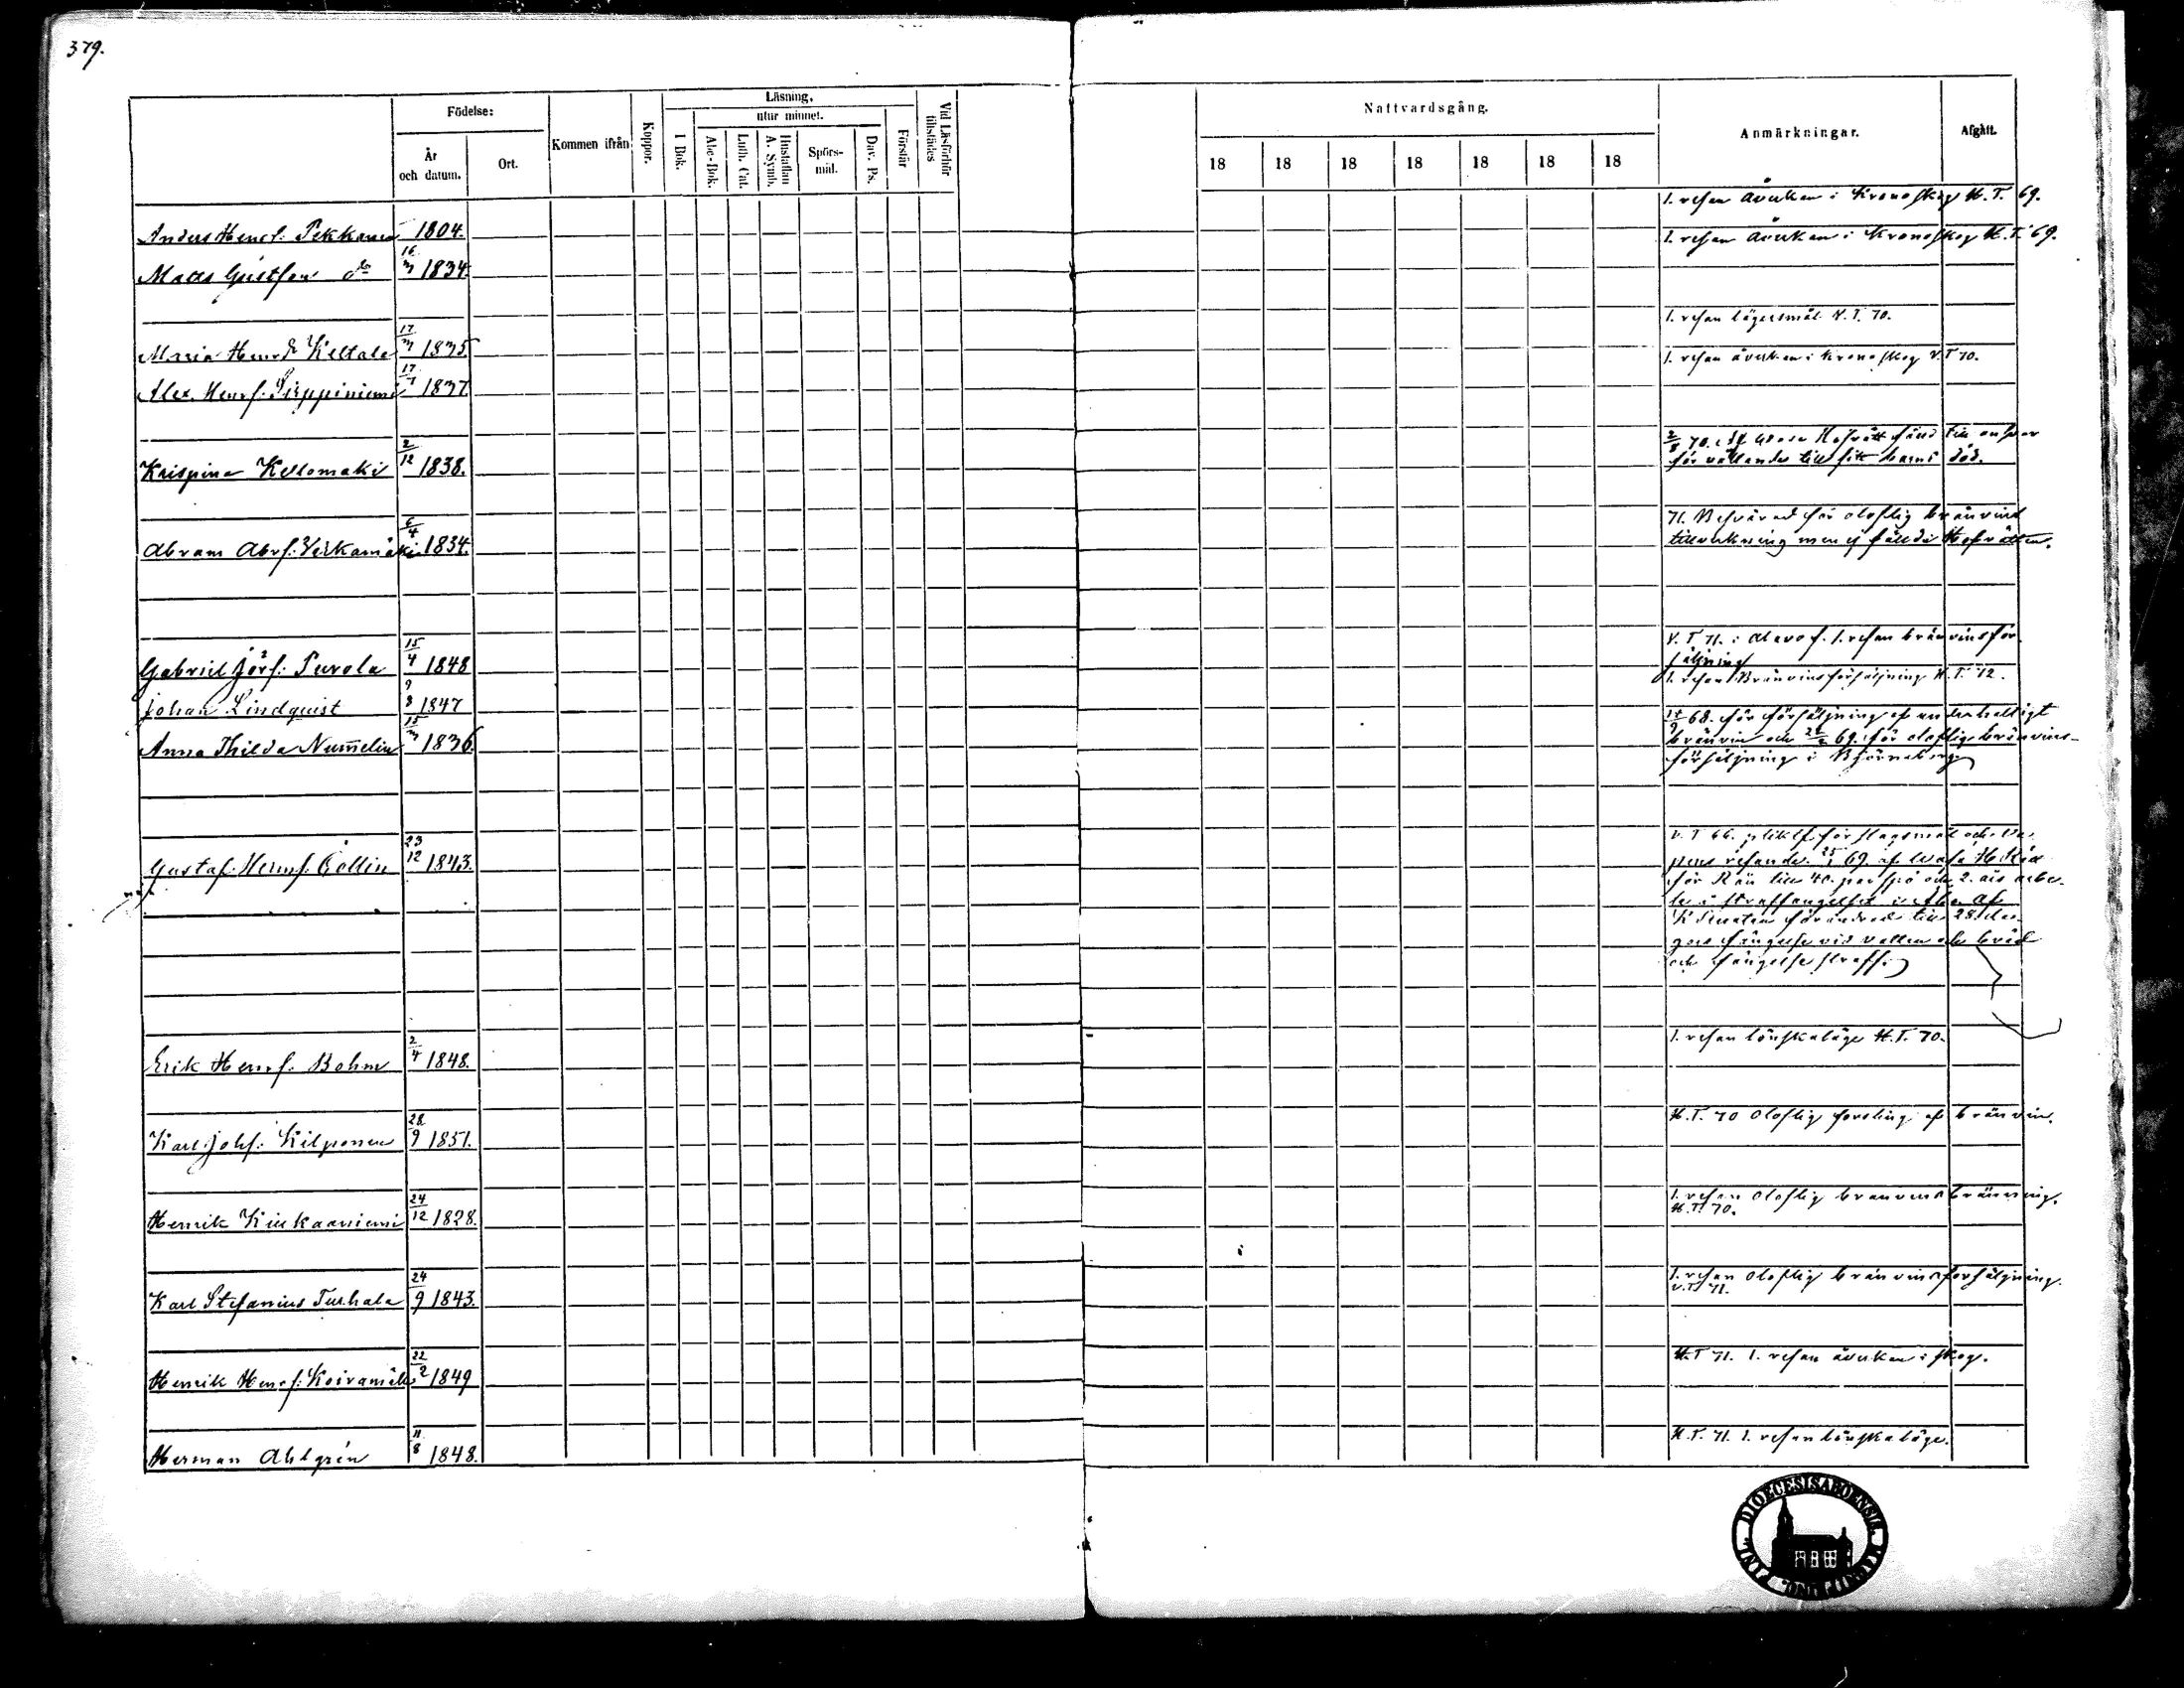 379.
Födelse:
År och datum.
Ort.
Kommen ifrån
Koppor.
Läsning,
utur minnet.
I Bok.
Abc-Bok.
Luth. Cat.
Hustaflan A. Symb.
Spörs-mål.
Dav. Ps.
Förstår
Vid Läsförhör tillstädes
Nattvardsgång.
18 18 18 18 18 18 18
Anmärkningar.
Afgått.
1. resan åverkan i Kronoskog H.T. 69.
Anders Henrs: Pekkanen 1804.
1. resan åverkan i Kronoskog H.T. 69.
Matts Gustfson do 16/3 1834.
1. resan lägersmål V.T. 70.
Maria Henrdr Keltala 17/3 1835
1. resan åverkan i Kronoskog V.T 70.
Alex. Henrs: Sirppiniemi 17/1 1837.
2/8 70. af Wasa Hofrätt
för vållande till sitt barns död.
Krispina Kellomäki 2/12 1838.
71. Besvärad för oloflig bränvins
tillverkning men ej fälld i Hofrätten.
Abram Abrs: Verkamäki 6/4 1834.
V.T 71. i Alavo s. 1. resan bränvinsför
säljning
Gabriel Jörs: Purola 15/4 1848
1. resan Bränvinsförsäljning H.T. 72.
Johan Lindquist 9/8 1847
68. för försäljning af underhaltigt
bränvin och 69. för oloflig bränvins-
försäljning i Björneborg
Anna Thilda Numelin 15/3 1836
V. T 66. pliktf. för slagsmål och
69. af Wasa H.Rätt
för Rån till 40. par spö och 2. års arbe-
te i straffängelset i Åbo. af
K Senaten förändrad till 28. da-
gars fängelse vid vatten och bröd
och fängelse straff.
Gustaf Henrs. Collin 23/12 1843.
1. resan lönskaläge H.T. 70.
Erik Henrs. Bohm 2/4 1848.
H.T. 70 Oloflig forsling af bränvin.
Karl Johs: Kilponen 28/9 1851.
1. resan oloflig bränvins bränning.
H.T. 70.
Henrik Kiukaaniemi 24/12 1828.
1. resan oloflig bränvinsförsäljning.
V.T. 71.
Karl Stefanius Turhala 24/9 1843.
H.T 71. 1. resan åverkan i skog.
Henrik Henrs: Koiramäki 22/2 1849
H.T. 71. 1. resan lönskaläge.
Herman Ahlgrén 11/8 1848.